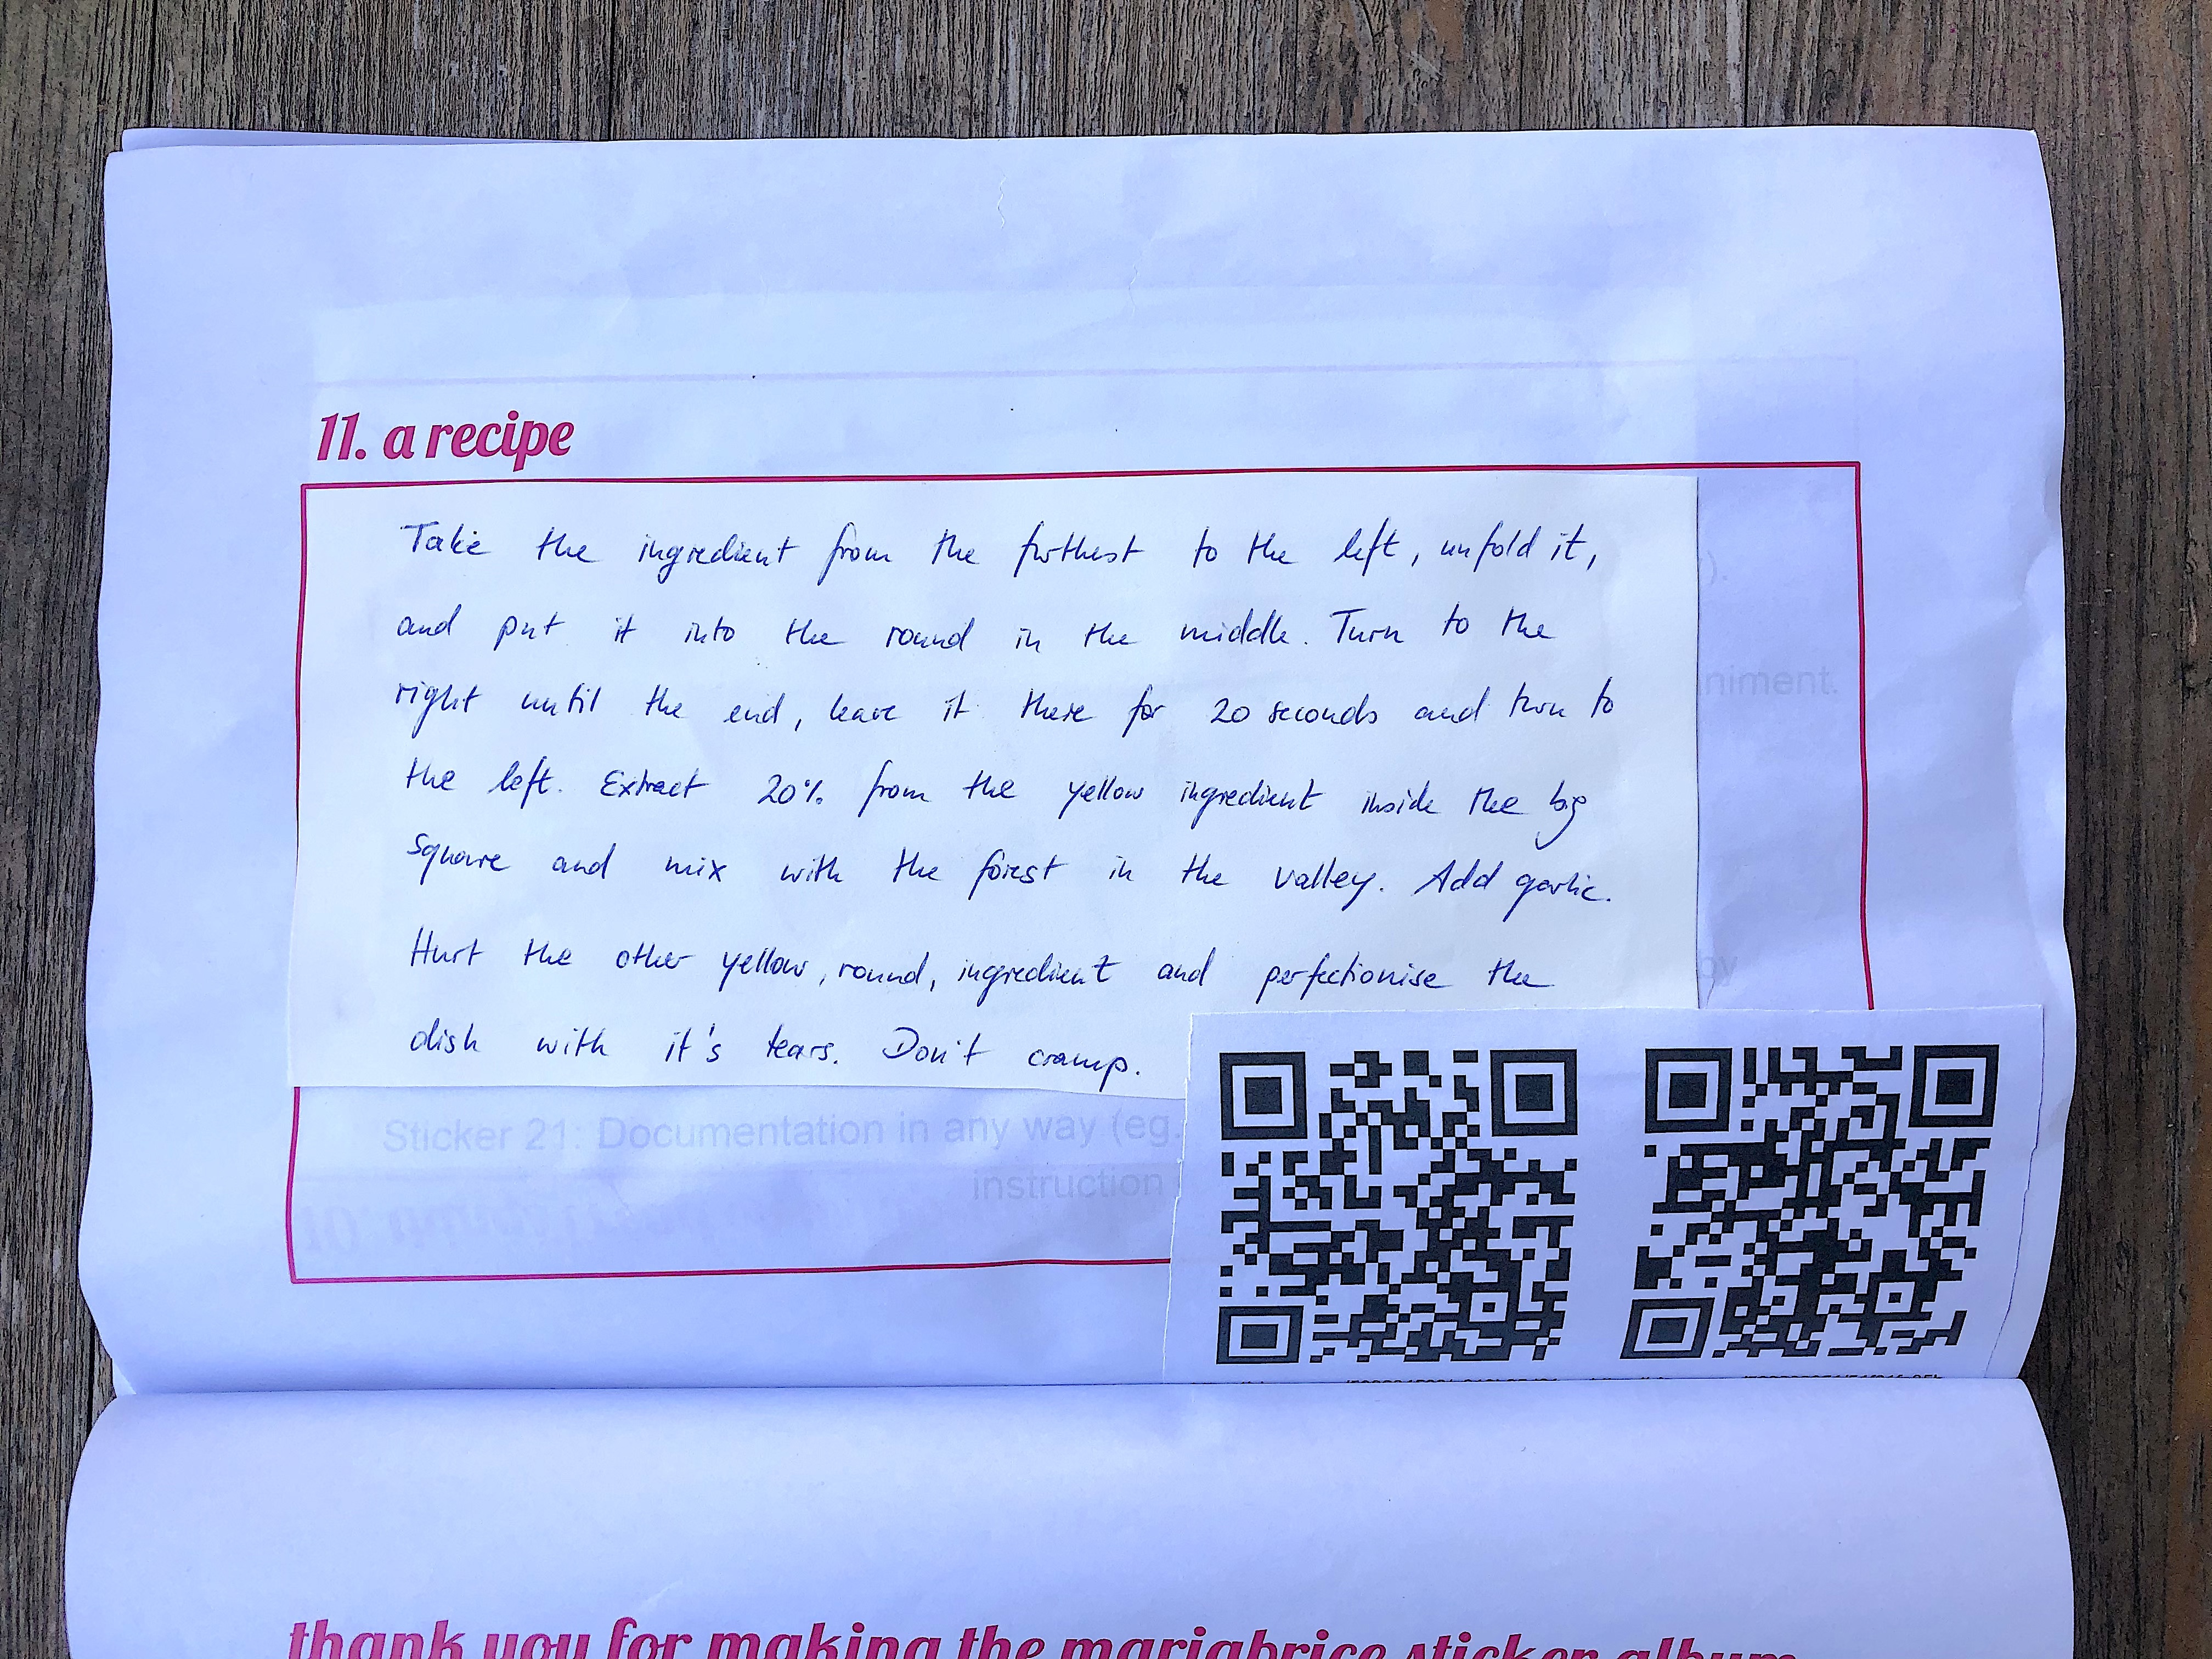 11. a recipe
Take the ingredient from the furthest to the left, unfold it,
and put it into the round in the middle. Turn to the
right until the end, leave it there for 20 seconds and turn to
the left. Extract 20% from the yellow ingredient inside the big
square and mix with the forest in the valley. Add garlic.
Hurt the other yellow, round, ingredient and perfectionise the
dish with it's tears. Don't cramp.
).
niment.
Sticker 21: Documentation in any way (eg.
instruction
thank you for making the mariabrice sticker album